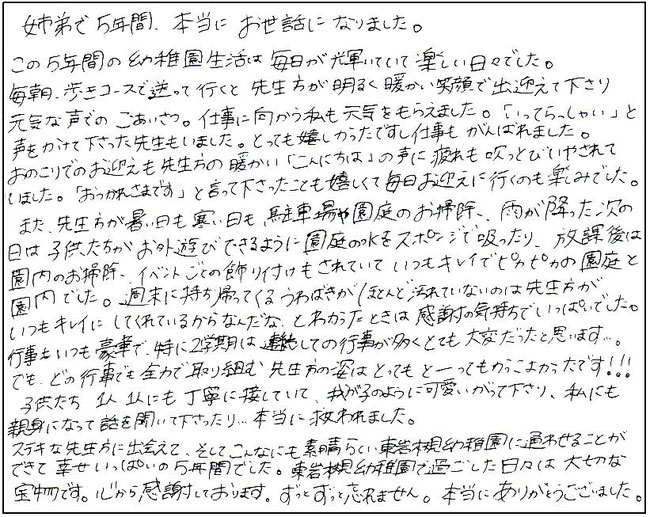 姉弟で5年間、本当にお世話になりました。
この5年間の幼稚園生活は毎日が輝いていて楽しい日々でした。
毎朝、歩きコースで送って行くと先生方が明るく暖かい笑顔で出迎えて下さり
元気な声でのごあいさつ。仕事に向かう私も元気をもらえました。「いってらっしゃい」と
声をかけて下さった先生もいました。とっても嬉しかったですし仕事もがんばれました。
おのこりでのお迎えも先生方の暖かい「こんにちは」の声に疲れも吹っとびいやされて
いました。「おつかれさまです」と言って下さったことも嬉しくて毎日お迎えに行くのも楽しみでした。
また、先生方が暑い日も寒い日も駐車場や園庭のお掃除、雨が降った次の
日は子供たちがお外遊びできるように園庭の水をスポンジで吸ったり、放課後は
園内のお掃除、イベントごとの飾り付けもされていていつもキレイでピカピカの園庭と
園内でした。週末に持ち帰ってくるうわばきがほとんど汚れていないのは先生方が
いつもキレイにしてくれているからなんだな、とわかったときは感謝の気持ちでいっぱいでした。
行事もいつも豪華で、特に2学期は連続しての行事が多くとても大変だったと思います…。
でも、どの行事でも全力で取り組む先生方の姿はとってもとーってもかっこよかったです!!!
子供たち1人1人にも丁寧に接していて、我が子のように可愛いがって下さり、私にも
親身になって話を聞いて下さったり…本当に救われました。
ステキな先生方に出会えて、そしてこんなにも素晴らしい東岩槻幼稚園に通わせることが
できて幸せいっぱいの5年間でした。東岩槻幼稚園で過ごした日々は大切な
宝物です。心から感謝しております。ずっとずっと忘れません。本当にありがとうございました。